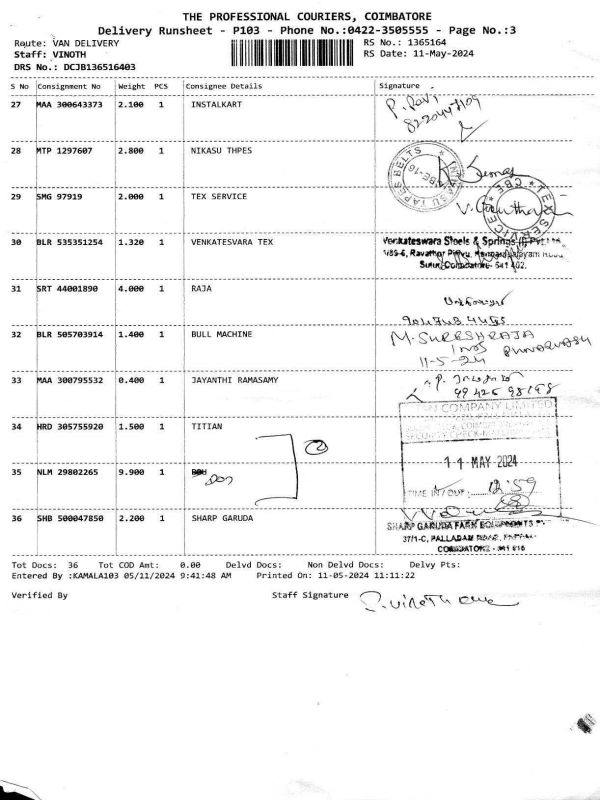 THE PROFESSIONAL COURIERS, COIMBATORE
Delivery Runsheet - P103 - Phone No.:0422-3505555 - Page No.:3
Route: VAN DELIVERY
RS No.: 1365164
Staff: VINOTH
RS Date: 11-May-2024
DRS No.: DCJB136516403
S No Consignment No Weight PCS Consignee Details Signature
27 MAA 300643373 2.100 1 INSTALKART
P. Ravi
28 MTP 1297607 2.800 1 NIKASU THPES
29 SMG 97919 2.000 1 TEX SERVICE
TEX SERVICE * CBE *
30 BLR 535351254 1.320 1 VENKATESVARA TEX
Venkateswara Steels & Springs (I) Pvt Ltd.
Sulur, Coimbatore- 641 402.
31 SRT 44001890 4.000 1 RAJA
32 BLR 505703914 1.400 1 BULL MACHINE
M. SURESH RAJA
11-5-24
33 MAA 300795532 0.400 1 JAYANTHI RAMASAMY
34 HRD 305755920 1.500 1 TITIAN
COMPANY LIMITED
2
11 MAY 2024
35 NLM 29802265 9.900 1
TIME IN / OUT : 12:59
36 SHB 500047850 2.200 1 SHARP GARUDA
SHARP GARUDA FARM EQUIPMENTS
37/1-C, PALLADAM ROAD,
COIMBATORE - 641 016
Tot Docs: 36 Tot COD Amt: 0.00 Delvd Docs: Non Delvd Docs: Delvy Pts:
Entered By :KAMALA103 05/11/2024 9:41:48 AM Printed On: 11-05-2024 11:11:22
Verified By Staff Signature